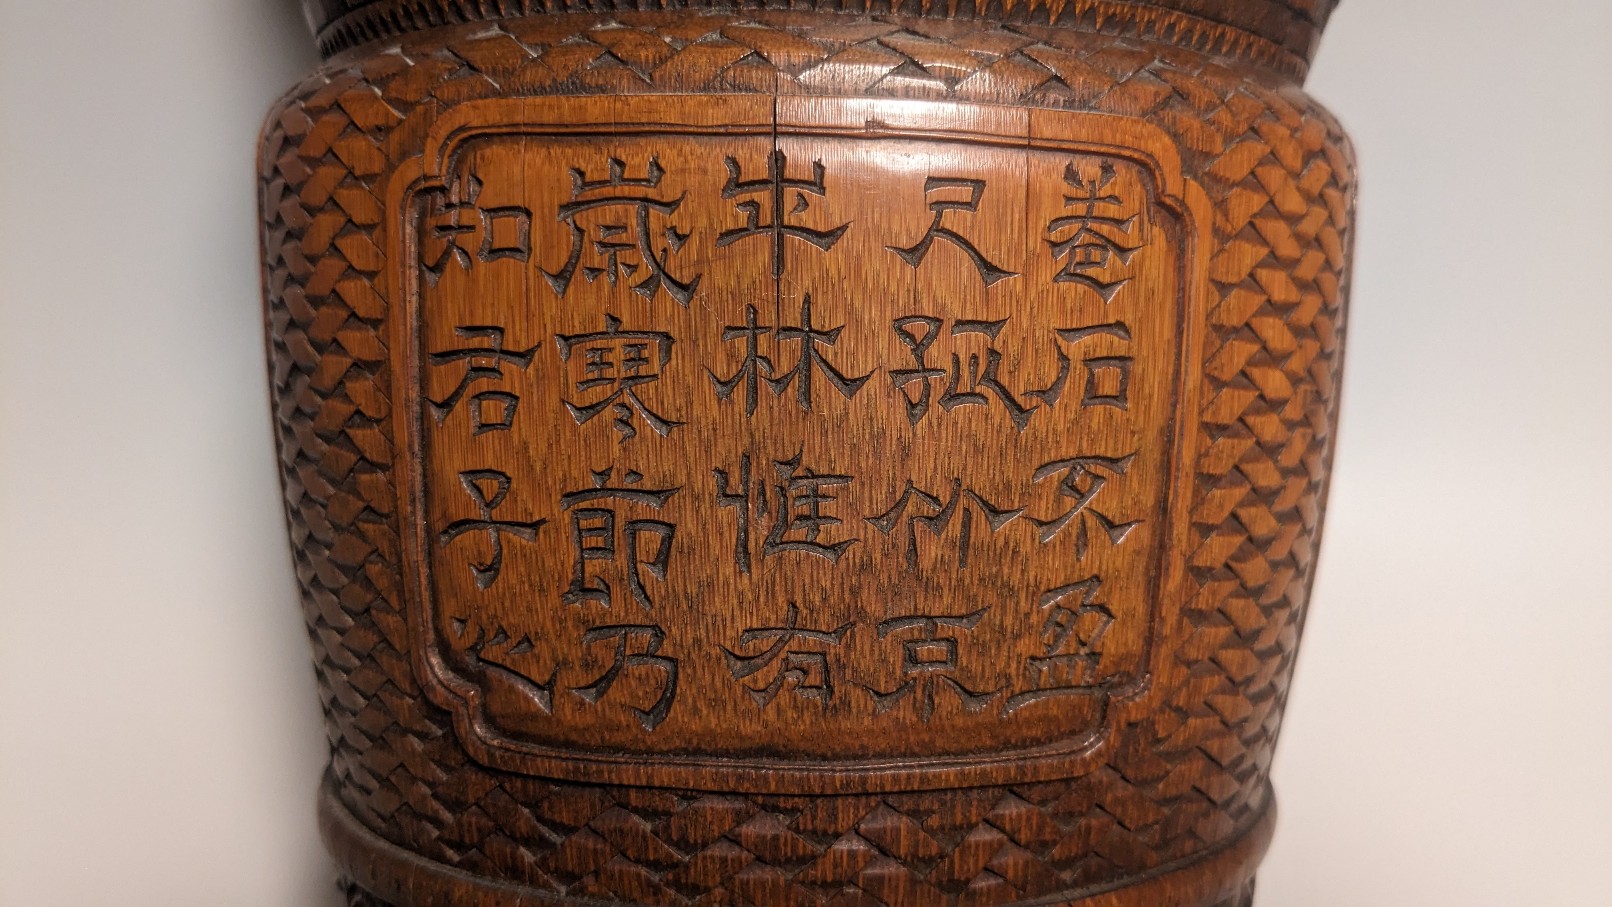 卷石不盈
尺孤竹不
林惟有
歲寒節乃
知君子心